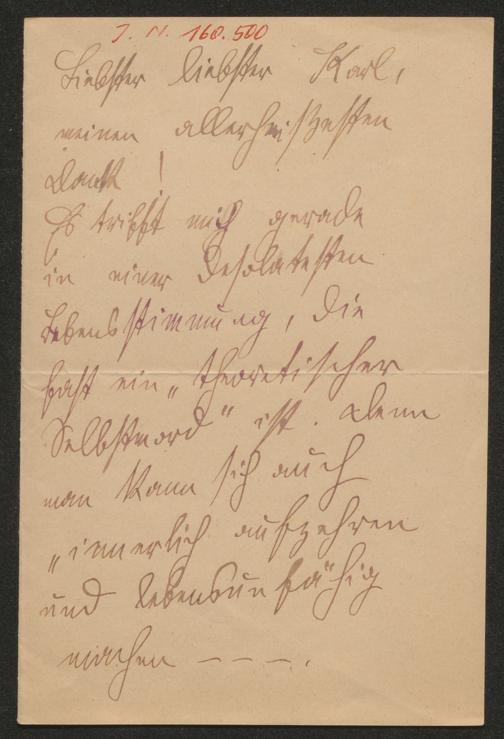 J. N. 160.500
Liebster liebster Karl,
meinen allerheißesten
Dank!
Es trifft mich gerade
in einer desolatesten
Lebensstimmung, die
fast ein „theoretischer
Selbstmord" ist. Denn
man kann sich auch
„innerlich aufzehren
und lebensunfähig
machen – – – .